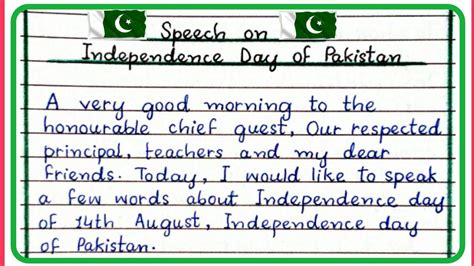 Speech on
Independence Day of Pakistan
A very good morning to the
honourable chief guest, Our respected
principal, teachers and my dear
friends. Today, I would like to speak
a few words about Independence day
of 14th August, Independence day
of Pakistan.